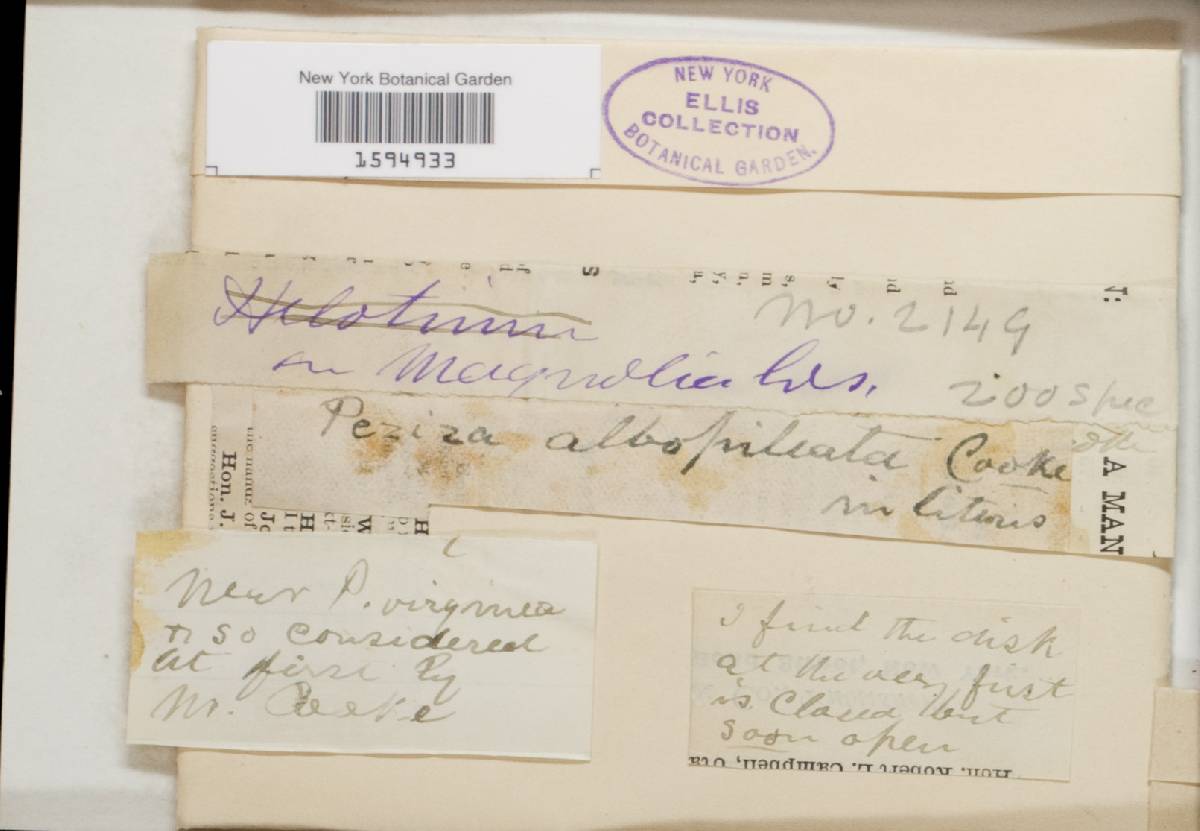 New York Botanical Garden
1594933
NEW YORK
ELLIS
COLLECTION
BOTANICAL GARDEN.
Helotium
No. 2149
on Magnolia lvs.
200 spec
Peziza albopileata Cooke
in literis
Hon. J.
A MAN
near P. virginea
& so considered
at first by
Mr. Cooke
I find the disk
at the very first
is closed but
soon open
Hon. Robert L. Campbell, Uta